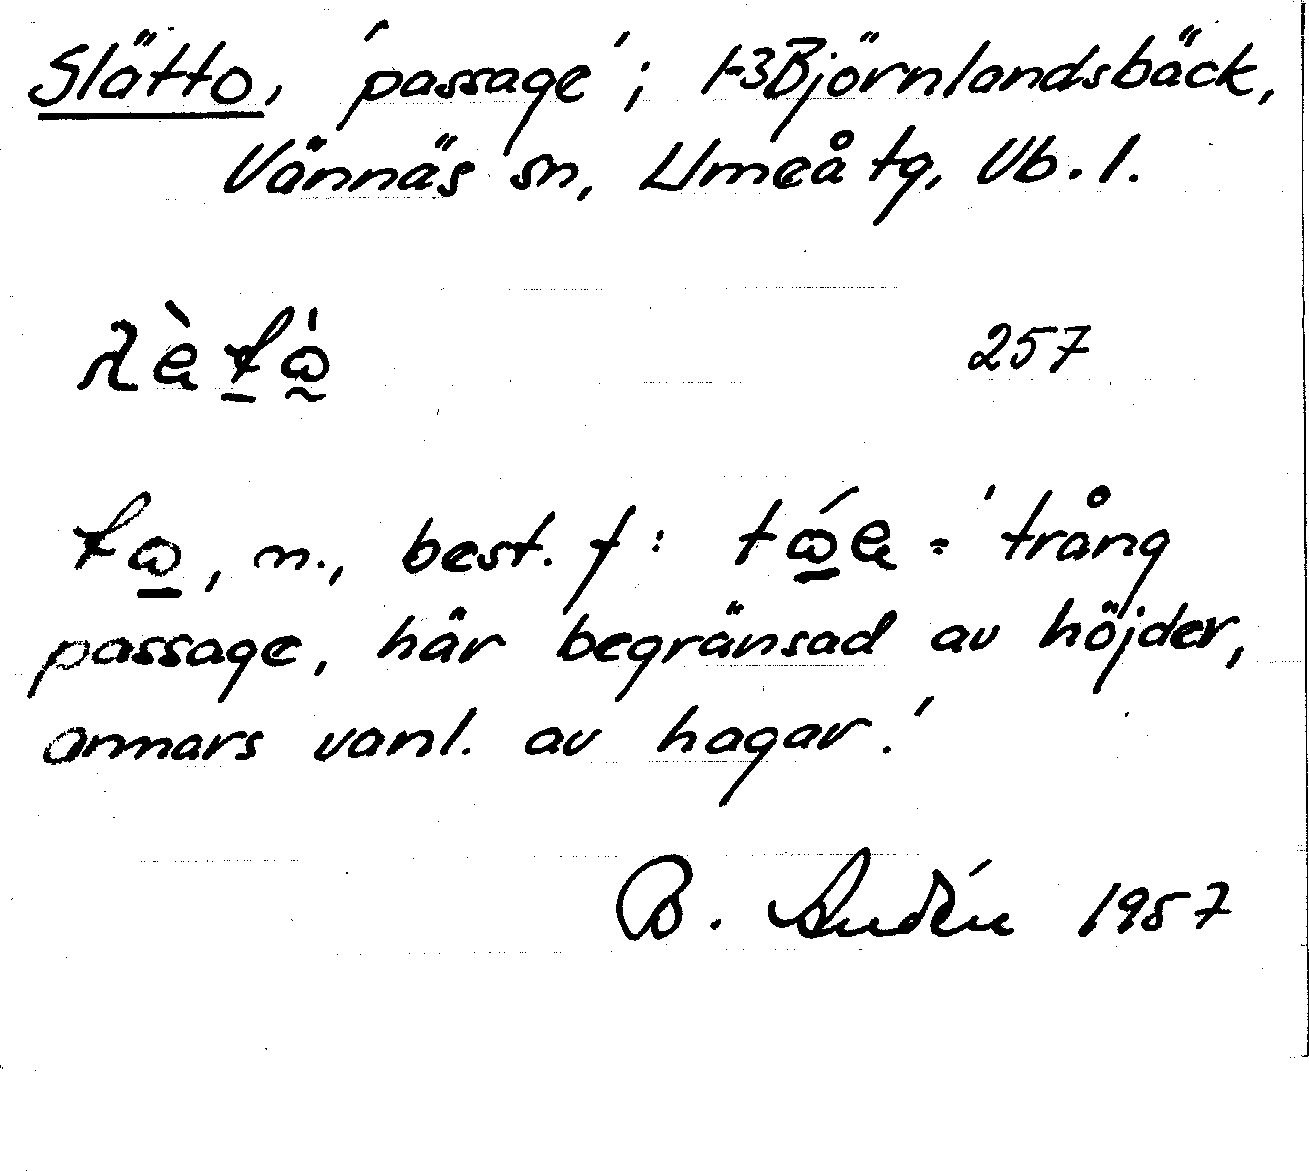 Slätto, 'passage'; 1-3 Björnlandsbäck,
Vännäs sn, Umeå tg, Vb. l.
257
n., best. f: = 'trång
passage, här begränsad av höjder,
annars vanl. av hagar.'
B. Audén 1957